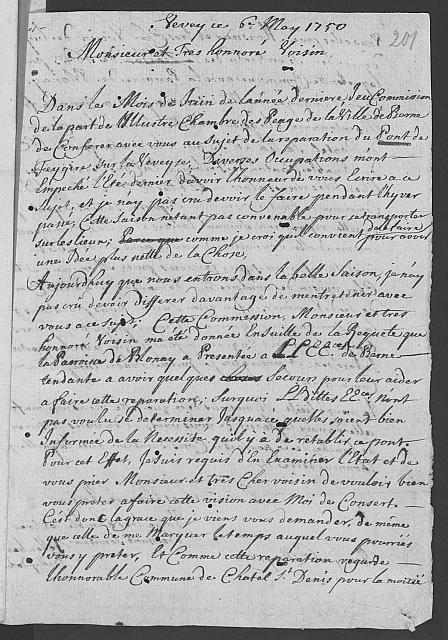 Vevey ce 6.e May 1750
201
Monsieur et Tres honnoré Voisin
Dans le Mois de Iuin de l'année derniere J'eu Commission
de la part de l'Illustre Chambre des Peage de la Ville de Berne
de Conferer avec vous au Sujet de la reparation du Pont de
Feygere Sur la Veveyse. Diverses Occupations m'ont
Empeché l'Eté dernier d'avoir l'honneur de vous Ecrire a ce
Sujet, et je n'ay pas cru devoir le faire pendant l'hyver
passé, Cette Saison n'etant pas convenable pour se transporter
sur les lieux; comme je croi qu'il convient de le faire pour avoir
une Idée plus nette de la Chose.
Aujourdhuy que nous entrons dans la belle saison, je n'ay
pas cru devoir differer davantage de m'entretenir avec
vous a ce Sujet; Cette Commission, Monsieur et tres
honnoré Voisin m'a été donnée Ensuite de la Requete que
la Parroisse de Blonay a Presentée a LL.EE.ces de Berne
tendante a avoir quelques Secours pour leur aider
a faire cette reparation; Surquoi LLdittes EE.ces n'ont
pas voulu se determiner Jusqu'a ce qu'elles soient bien
Informée de la Necessité qu'il y a de retablir ce pont.
Pour cet Effet, Je suis requis d'En Examiner l'Etat et de
vous prier Monsieur et tres Cher voisin de vouloir bien
vous preter a faire cette vision avec Moi de Consert.
C'est donc la grace que je viens vous demander, de même
que celle de me Marquer le temps auquel vous pourriés
vous y preter, Et Comme cette reparation regarde
l'honnorable Commune de Chatel St Denis pour la moitié